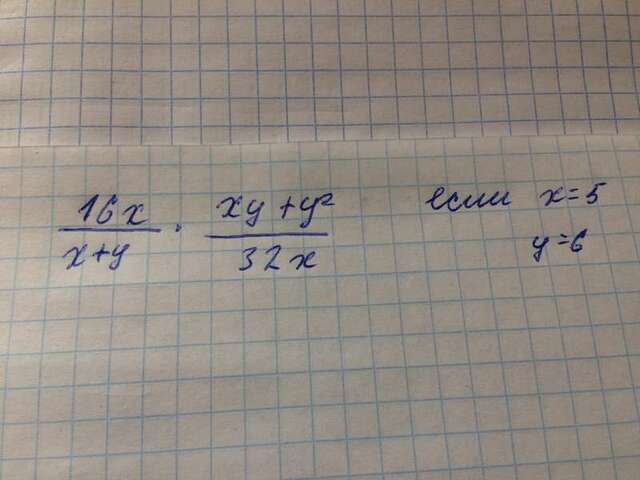 16x / x+y · xy+y² / 32x если x=5
y=6